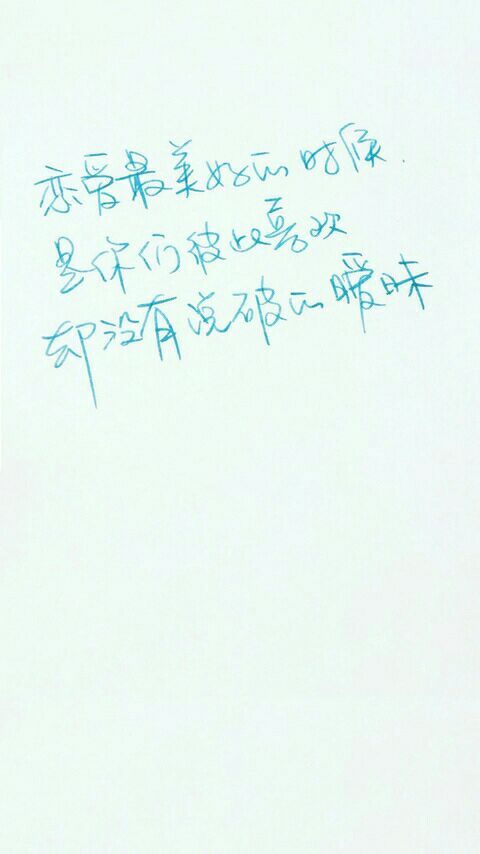 恋爱最美好的时候.
是你们彼此喜欢
却没有说破的暧昧